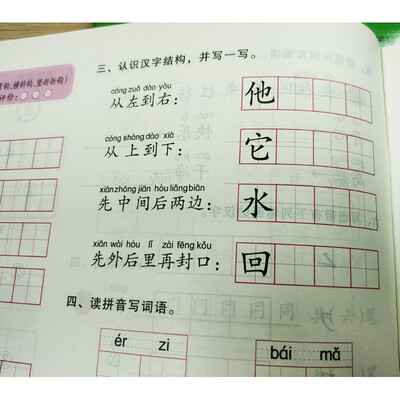 弯钩,横斜钩,竖折折钩)
评价:
三、认识汉字结构,并写一写。
cóng zuǒ dào yòu
从左到右: 他
cóng shàng dào xià
从上到下: 它
xiān zhōng jiān hòu liǎng biān
先中间后两边: 水
xiān wài hòu lǐ zài fēng kǒu
先外后里再封口: 回
四、读拼音写词语。
ér zi
bái mǎ